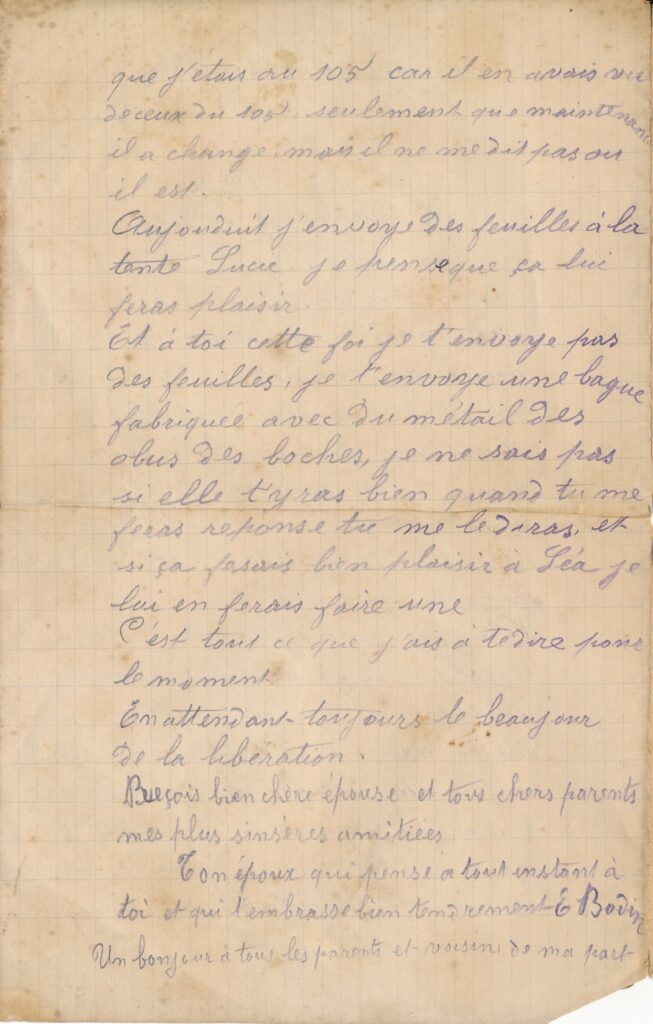 que j'étais au 105 car il en avais vu
deceux du 105, seulement que maintenant
il a change, mais il ne me dit pas ou
il est.
Aujouduit j'envoye des feuilles à la
tente Lucie, je pense que ça lui
feras plaisir.
Et à toi cette foi je t'envoye pas
des feuilles, je t'envoye une bague
fabriquée avec du métail des
obus des boches, je ne sais pas
si elle t'yras bien quand tu me
feras reponse tu me lediras, et
si ça fesais bien plaisir à Léa je
lui en ferais faire une
C'est tout ce que j'ais à tedire pour
le moment
En attendant toujours le beaujour
de la libération.
Reçois bien chère épouse et tous chers parents
mes plus sinsères amitiées
Ton époux qui pense a tout instant à
toi et qui t'embrasse bien tendrement E Bodin
Un bonjour à tous les parents et voisins de ma part